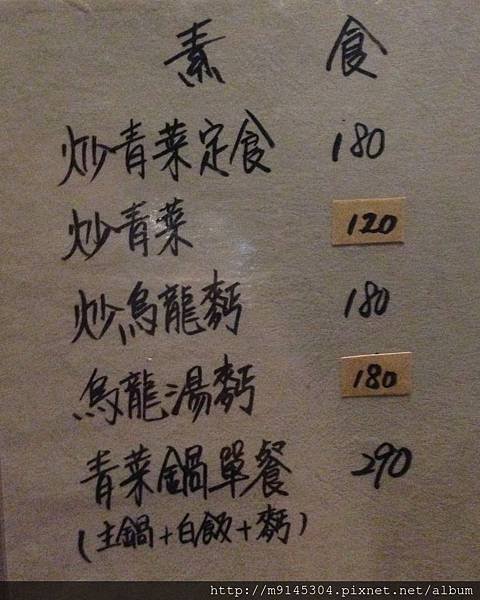 素 食
炒青菜定食 180
炒青菜 120
炒烏龍麵 180
烏龍湯麵 180
青菜鍋單餐 290
(主鍋+白飯+麵)
http://m9145304.pixnet.net/album